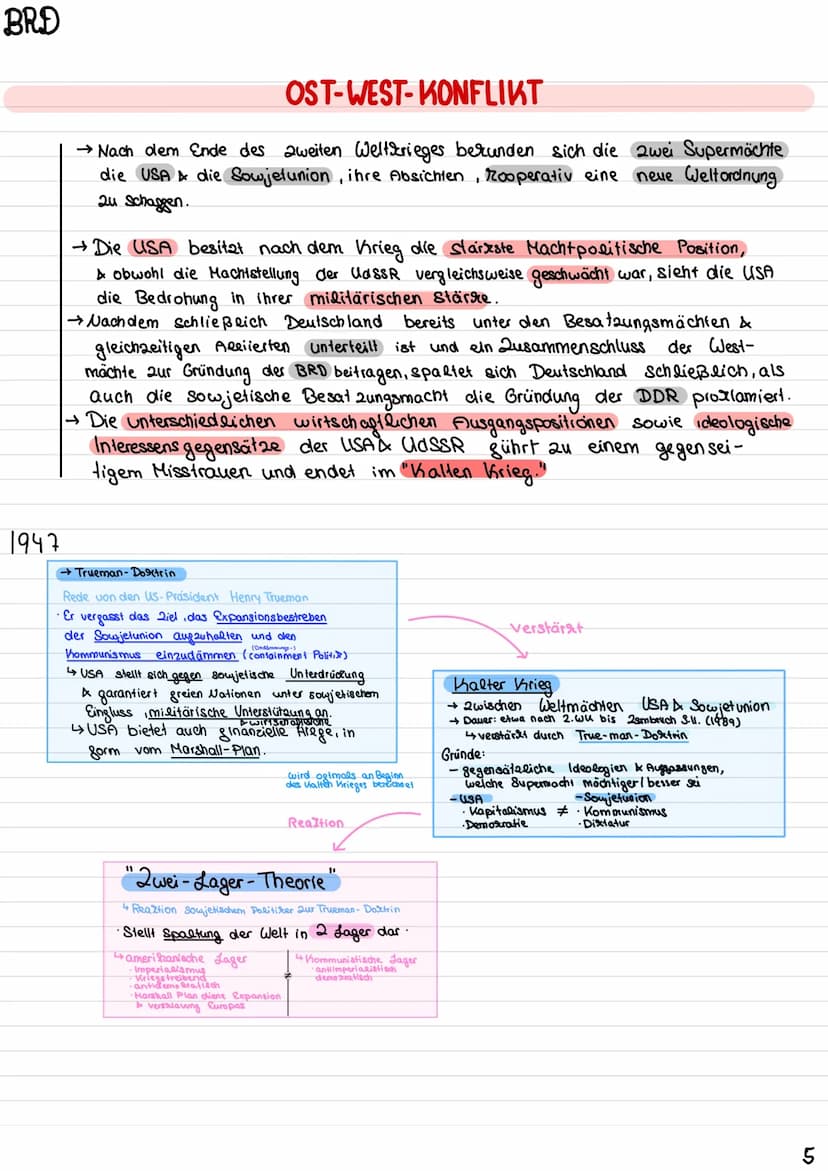 BRD
OST-WEST-KONFLIKT
→ Nach dem Ende des zweiten Weltkrieges bekunden sich die zwei Supermächte
die USA & die Sowjetunion, ihre Absichten, kooperativ eine neue Weltordnung
zu schaffen.
→ Die USA besitzt nach dem Krieg die stärkste Machtpolitische Position,
& obwohl die Machtstellung der UdSSR vergleichsweise geschwächt war, sieht die USA
die Bedrohung in ihrer militärischen Stärke.
→ Nachdem schließlich Deutschland bereits unter den Besatzungsmächten &
gleichzeitigen Alliierten unterteilt ist und ein Zusammenschluss der West-
mächte zur Gründung der BRD beitragen, spaltet sich Deutschland schließlich, als
auch die sowjetische Besatzungsmacht die Gründung der DDR proklamiert.
→ Die unterschiedlichen wirtschaftlichen Ausgangspositionen sowie ideologische
Interessensgegensätze der USA & UdSSR führt zu einem gegensei-
tigem Misstrauen und endet im "Kalten Krieg."
1947
→ Trueman-Doktrin
Rede von den US-Präsident Henry Trueman
· Er verfasst das Ziel, das Expansionsbestreben
der Sowjetunion aufzuhalten und den
(Eindämmungs-)
Kommunismus einzudämmen (containment Politik)
↳ USA stellt sich gegen sowjetische Unterdrückung
& garantiert freien Nationen unter sowjetischem
Einfluss, militärische Unterstützung an.
& wirtschaftliche
↳ USA bietet auch finanzielle Hilfe, in
form vom Marshall-Plan.
verstärkt
Kalter Krieg
→ zwischen Weltmächten USA & Sowjetunion
→ Dauer: etwa nach 2.WK bis Zsmbruch S.U. (1989)
↳ verstärkt durch True-man-Doktrin
Gründe:
- gegensätzliche Ideologien & Auffassungen,
welche Supermacht mächtiger/besser sei
- USA - Sowjetunion
· Kapitalismus ≠ · Kommunismus
· Demokratie · Diktatur
wird oftmals an Beginn
des Kalten Krieges bezeichnet
Reaktion
"Zwei-Lager-Theorie"
↳ Reaktion sowjetischem Politiker zur Trueman-Doktrin
· Stellt Spaltung der Welt in 2 Lager dar·
↳ amerikanische Lager ≠ ↳ Kommunistische Lager
· Imperialismus · antiimperialistisch
· Kriegstreibend demokratisch
· antidemokratisch
· Marshall Plan diene Expansion
& versklavung Europas
5